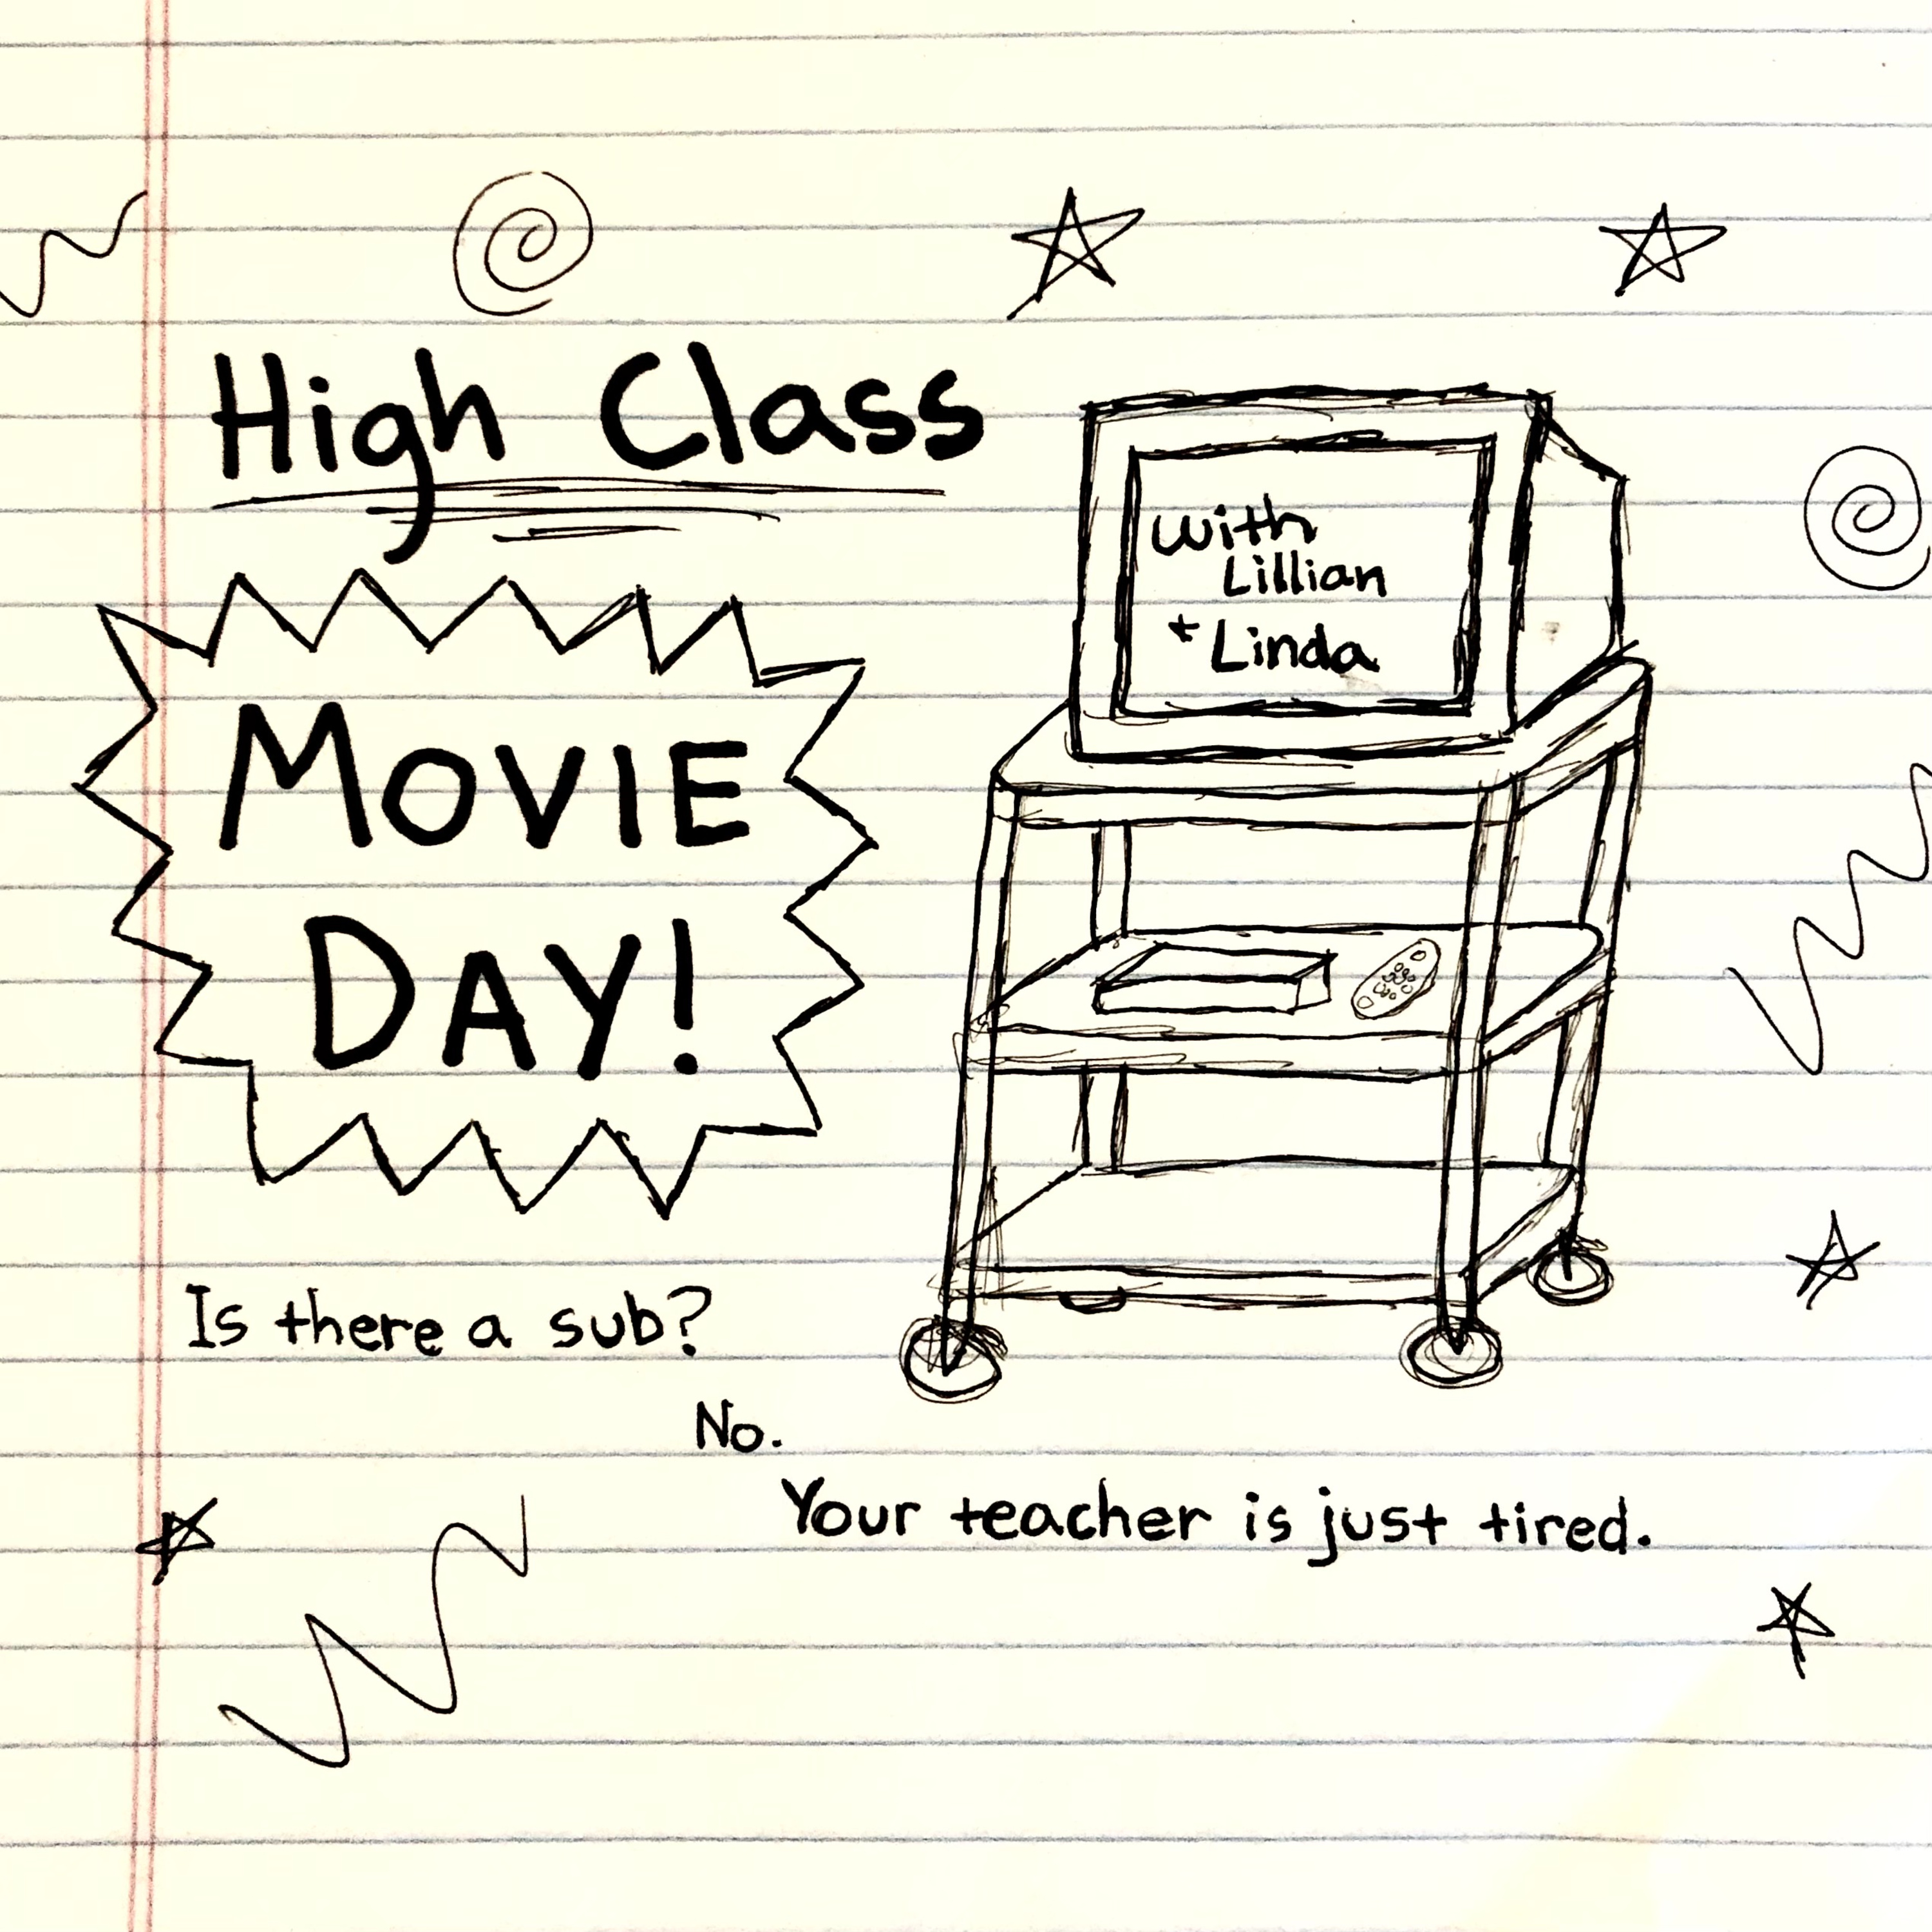 High Class
MOVIE
DAY!
with
Lillian
+ Linda
Is there a sub?
No.
Your teacher is just tired.